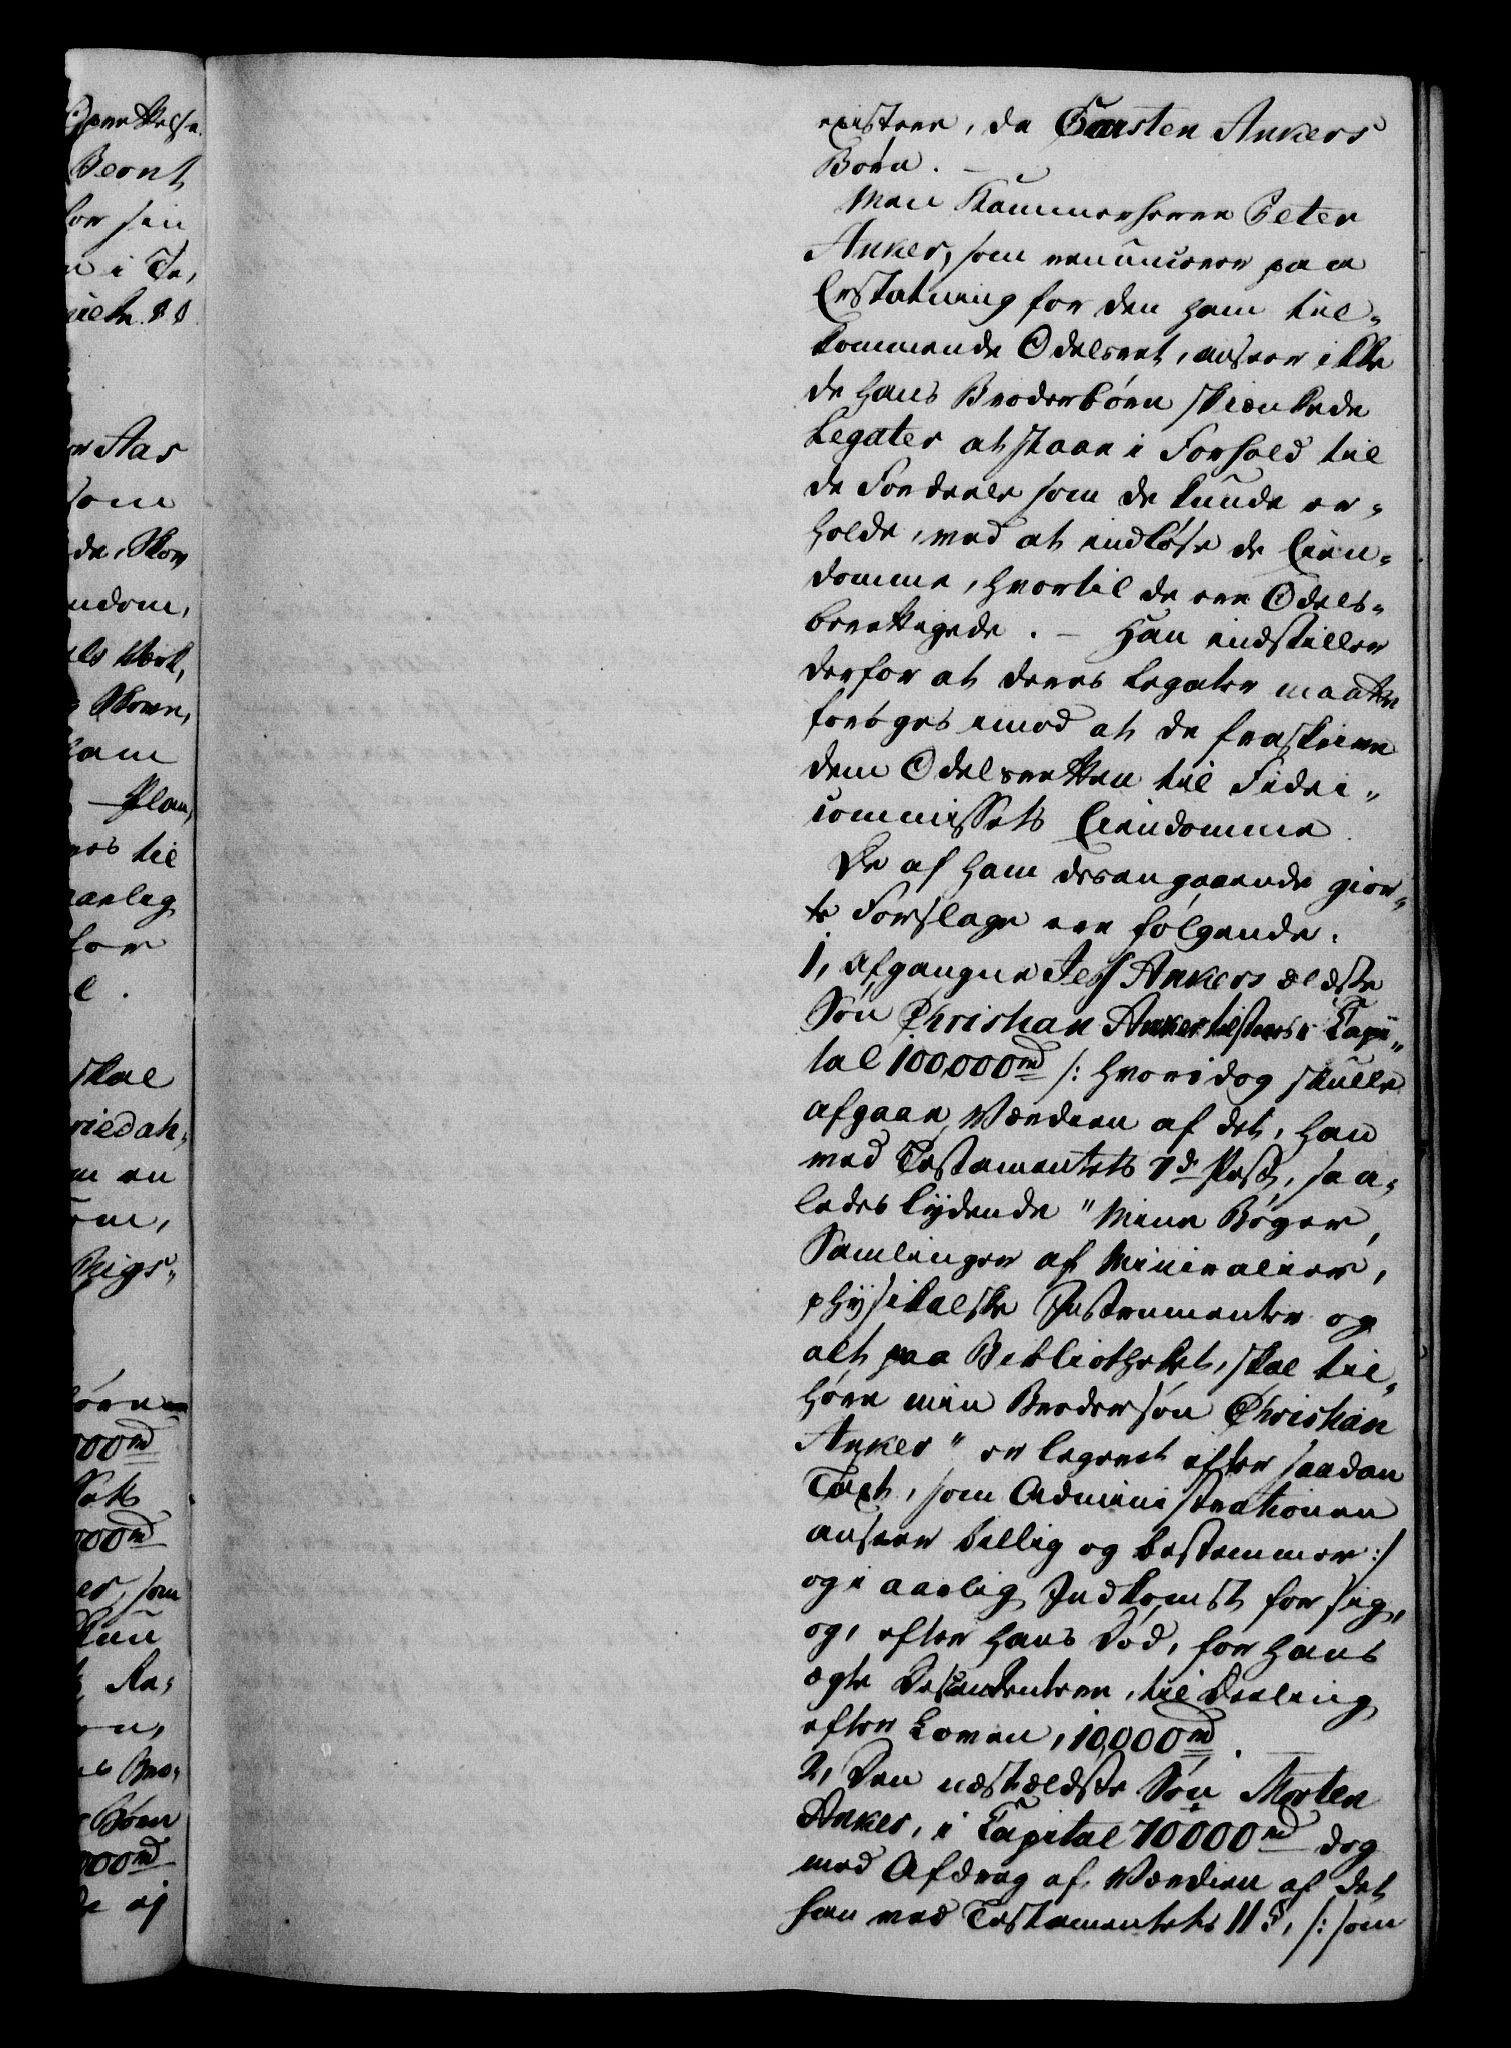 Opretttelse
Bernt
for sin
n i Te,
ult. 
Aas
som
de, Skov
ndom,
ls Værk,
Skove,
kam
Plan,
res til
aarlig
for
l.
skal
riedah,
en
om,
Rigs,
ørn
000rd
Sets
000rd
er, som
kan
Re,
Bro,
Børn
000rd
ej
existere, da Carsten Ankers
Børn. —
Men Kammerherre Peter
Anker, som renuncerer paa
Erstatning for den ham til,
kommende Odelsret, anseer ikke
de hans Broderbørn skienkede
Legater at staae i Forhold til
de Fordeele som de kunde er,
holde, ved at indløse de Eien,
domme, hvortil de ere Odels,
berettigede. — Han indstiller
derfor at deres Legater maatte
forøges imod at de fraskreve
dem Odelsretten til Fidei,
commissets Eiendomme
De af ham desangaaende gior,
te Forslage ere følgende.
1, Afgangne Jess Ankers ældste
Søn Christian Anker tilstaaes i Capi,
tal 100,000rd /: hvori dog skulle
afgaae Værdien af det, han
ved Testamentets 7de Post, saa,
ledes lydende "Mine Bøger,
Samlinger af Mineralier,
physikalske Instrumenter og
alt paa Bibliotheket, skal til,
høre min Brodersøn Christian
Anker" er legeret efter saadan
Taxt, som Administrationen
anseer billig og bestemmer :/
og i aarlig Indkomst for sig,
og, efter hans Død, for hans
ægte Descendentere, til Deeling
efter Loven, 10,000rd. —
2, Den næstældste Søn Morten
Anker, i Capital 70000rd dog
med Afdrag af Værdien af det
han ved Testamentets 11 §, /: som